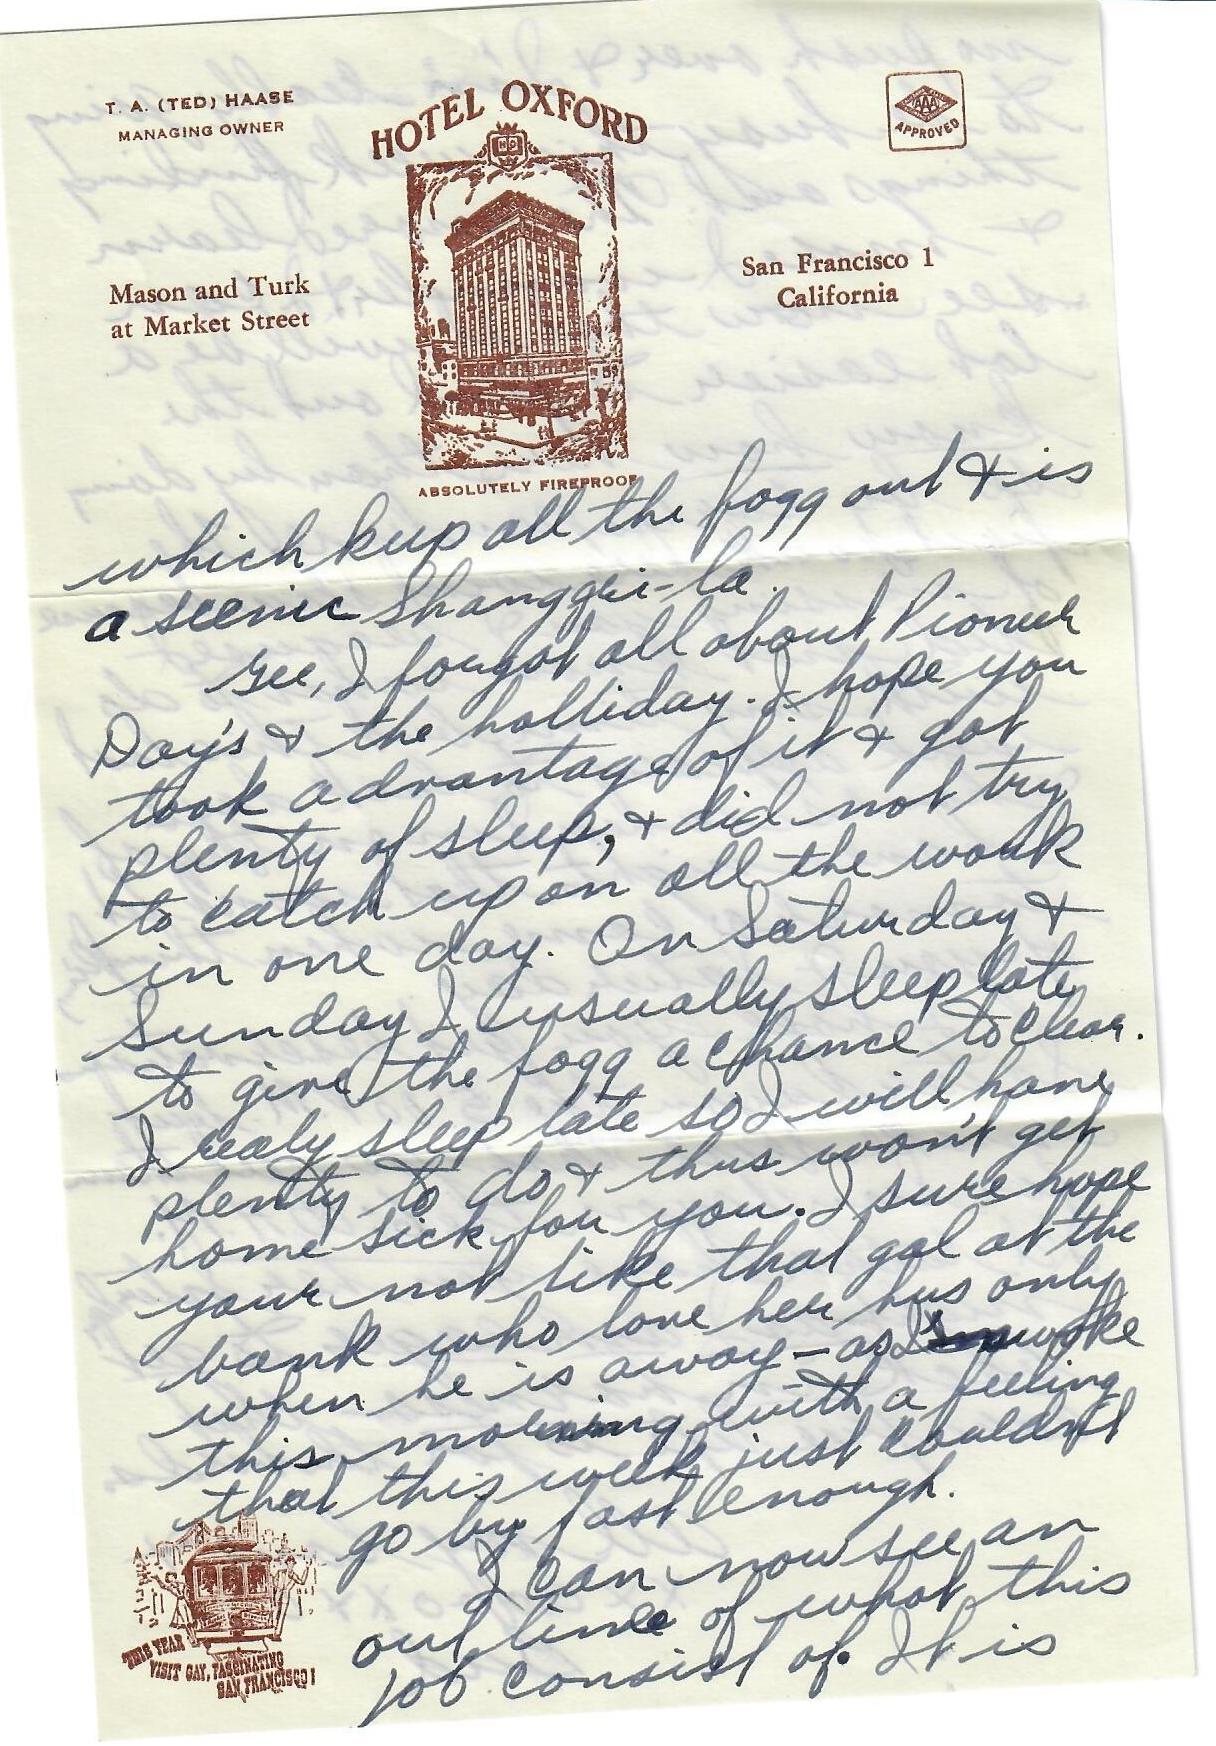 T. A. (TED) HAASE
MANAGING OWNER
HOTEL OXFORD
HO
AAA
APPROVED
Mason and Turk
at Market Street
San Francisco 1
California
ABSOLUTELY FIREPROOF
which keep all the fogg out & is
a scenic Shanggri-la.
Gee, I forgot all about Pioneer
Day's & the holliday. I hope you
took advantage of it & got
plenty of sleep, & did not try
to catch up on all the work
in one day. On Saturday &
Sunday I usually sleep late
to give the fogg a chance to clear.
I realy sleep late so I will have
plenty to do & thus won't get
home sick for you. I sure hope
your not like that gal at the
bank who love her hus only
when he is away – as I woke
this morning with a feeling
that this week just couldn't
go by fast enough.
I can now see an
out line of what this
job consist of. It is
THIS YEAR
VISIT GAY, FASCINATING
SAN FRANCISCO!